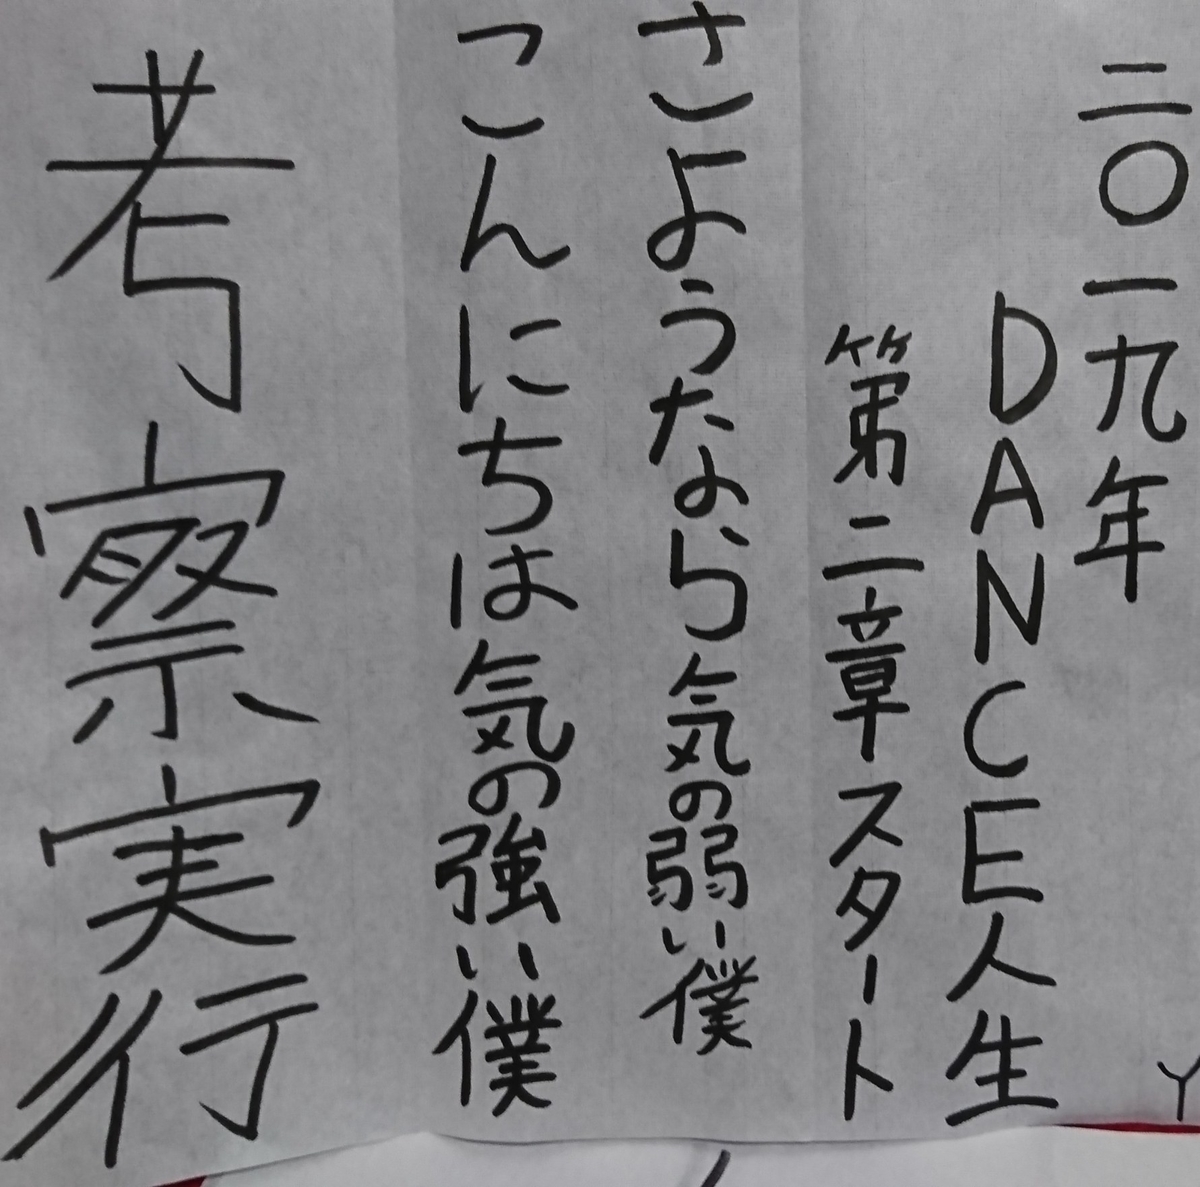 二〇一九年
DANCE人生
第二章スタート
さようなら気の弱い僕
こんにちは気の強い僕
考察実行